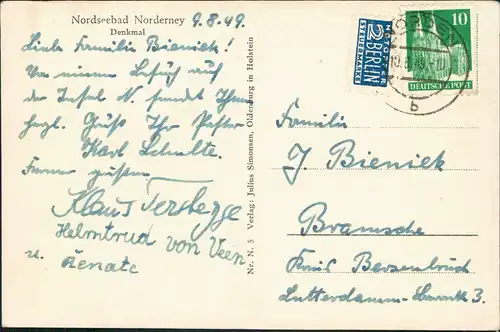 Nordseebad Norderney 9.8.49.
Denkmal
Liebe Familie Bieniek!
Von meinem Besuch auf
der Insel N. sendet Ihnen
herzl. Grüße Ihr Pastor
Karl Schulte.
Ferner grüßen
Klaus Terstegge
Helmtrud von Veen
u. Renate
Nr. N. 5 Verlag: Julius Simonsen, Oldenburg in Holstein
NOTOPFER
2 BERLIN
STEUERMARKE
NORDEN
b
10
DEUTSCHE POST
Familie
J. Bieniek
Bramsche
Kreis Bersenbrück
Lutterdamm 3.